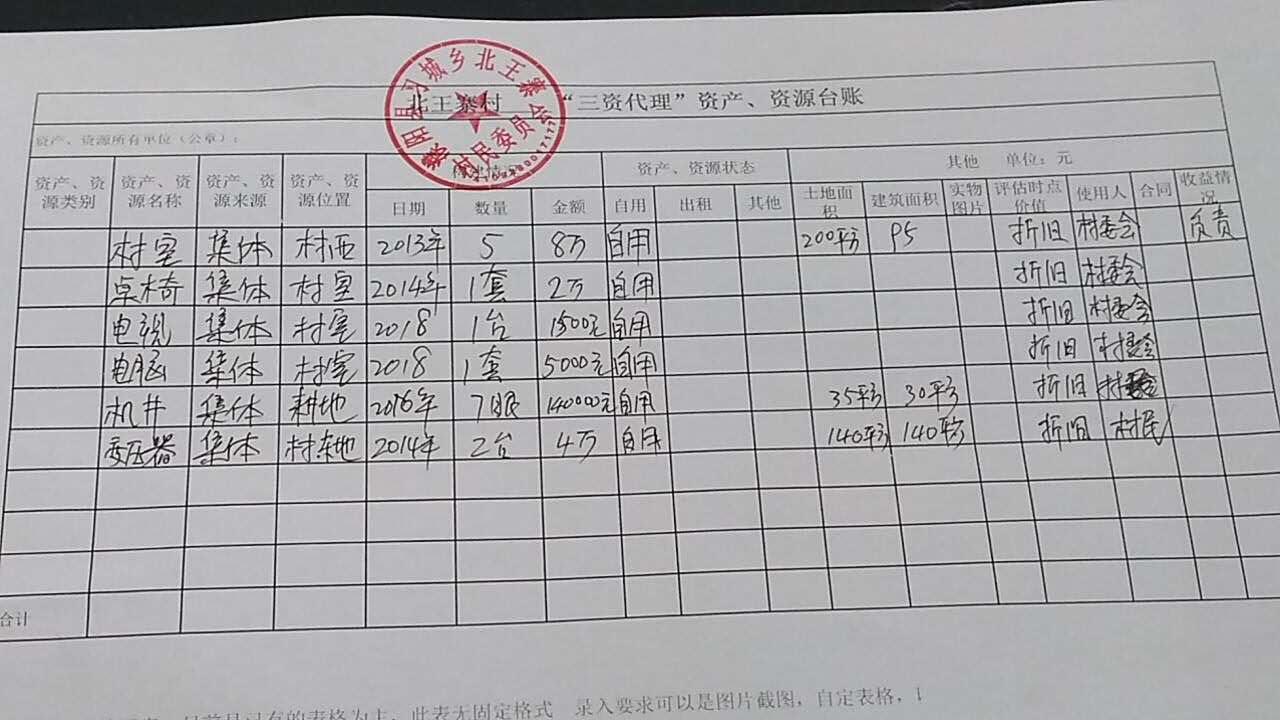 濮阳县习城乡北王寨
村民委员会
北王寨村 “三资代理”资产、资源台账
资产、资源所有单位（公章）：
资产、资源类别 资产、资源名称 资产、资源来源 资产、资源位置 资产、资源状态 其他 单位：元
日期 数量 金额 自用 出租 其他 土地面积 建筑面积 实物图片 评估时点价值 使用人 合同 收益情况
村室 集体 村西 2013年 5 8万 自用 200平方 95 折旧 村委会 负责
桌椅 集体 村室 2014年 1套 2万 自用 折旧 村委会
电视 集体 村室 2018 1台 1500元 自用 折旧 村委会
电脑 集体 村室 2018 1套 5000元 自用 折旧 村委会
机井 集体 耕地 2016年 7眼 140000元 自用 35平方 30平方 折旧 村委会
变压器 集体 村东地 2014年 2台 4万 自用 140平方 140平方 折旧 村民
合计
目前已有的表格为主，此表无固定格式 录入要求可以是图片截图，自定表格，